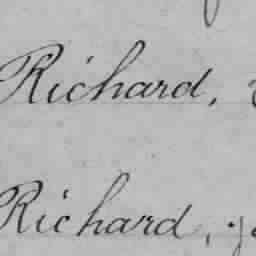 Richard,
Richard,